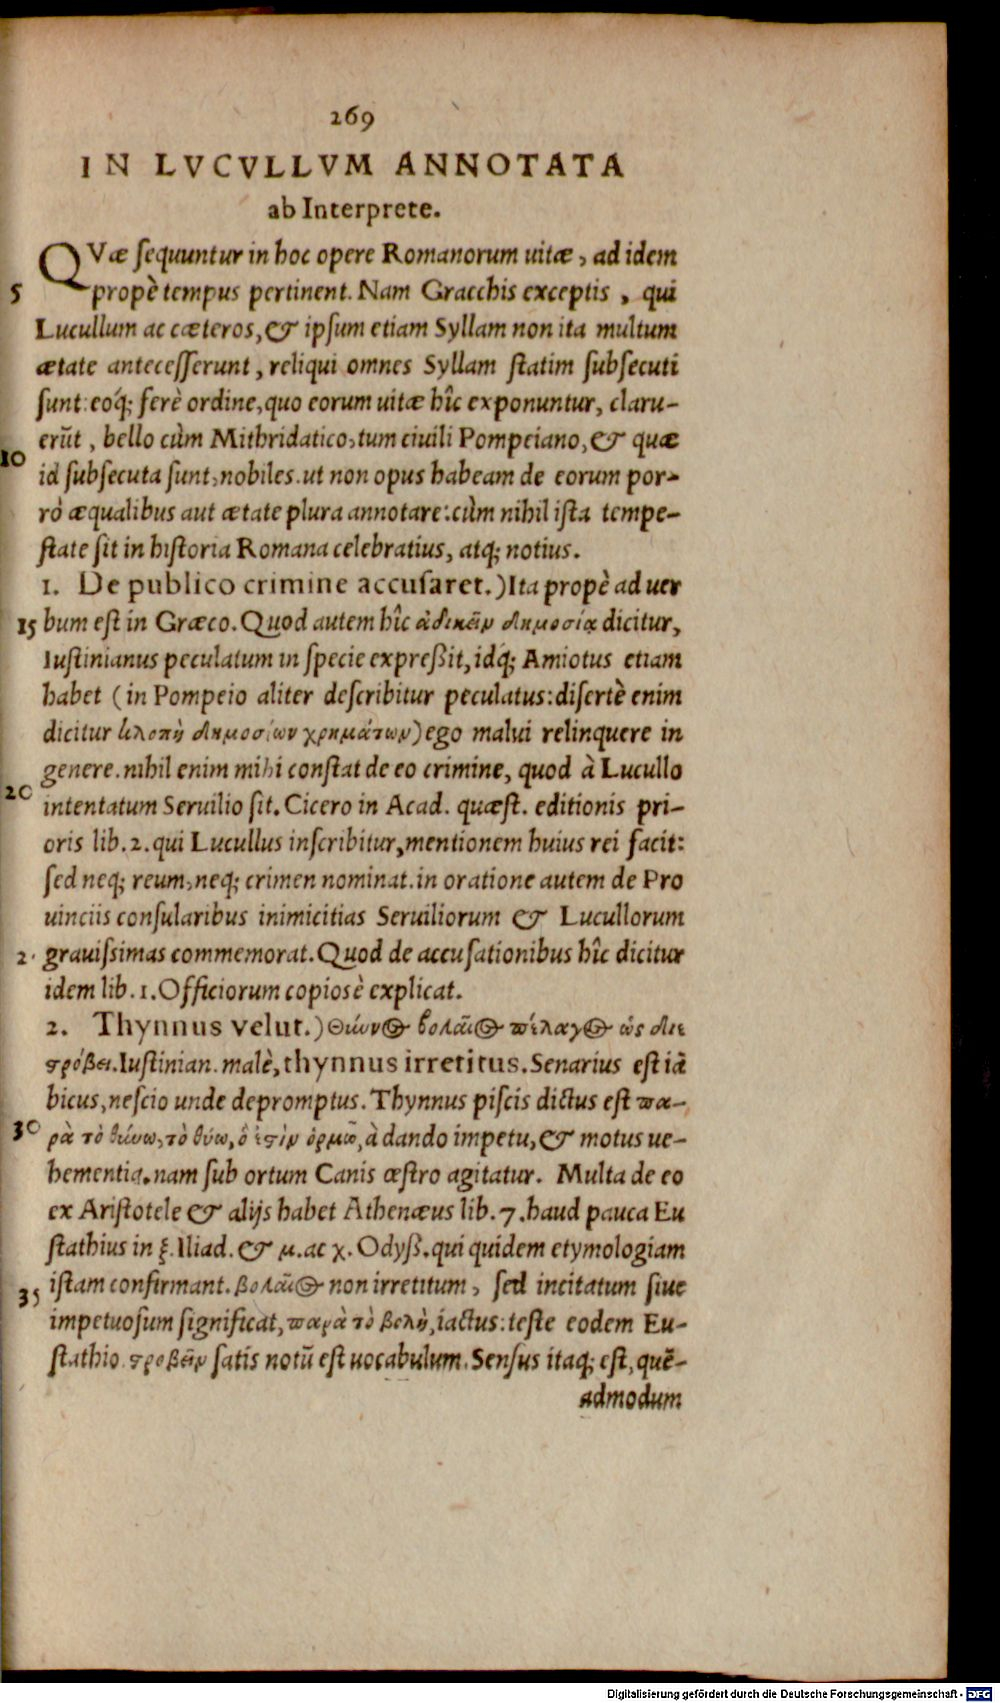 269
IN LVCVLLVM ANNOTATA
ab Interprete.
QVæ sequuntur in hoc opere Romanorum uitæ, ad idem
5 propè tempus pertinent. Nam Gracchis exceptis, qui
Lucullum ac cæteros, & ipsum etiam Syllam non ita multum
ætate antecesserunt, reliqui omnes Syllam statim subsecuti
sunt: eoq́; ferè ordine, quo eorum uitæ hîc exponuntur, claru-
erũt, bello cùm Mithridatico, tum ciuili Pompeiano, & quæ
10 id subsecuta sunt, nobiles. ut non opus habeam de eorum por-
rò æqualibus aut ætate plura annotare: cùm nihil ista tempe-
state sit in historia Romana celebratius, atq; notius.
1. De publico crimine accusaret.) Ita propè ad uer
15 bum est in Græco. Quod autem hîc ἀδικεῖν δημοσίᾳ dicitur,
Iustinianus peculatum in specie expreßit, idq́; Amiotus etiam
habet (in Pompeio aliter describitur peculatus: disertè enim
dicitur κλοπὴ δημοσίων χρημάτων) ego malui relinquere in
genere. nihil enim mihi constat de eo crimine, quod à Lucullo
20 intentatum Seruilio sit. Cicero in Acad. quæst. editionis pri-
oris lib. 2. qui Lucullus inscribitur, mentionem huius rei facit:
sed neq; reum, neq; crimen nominat. in oratione autem de Pro
uinciis consularibus inimicitias Seruiliorum & Lucullorum
2 grauissimas commemorat. Quod de accusationibus hîc dicitur
idem lib. 1. Officiorum copiosè explicat.
2. Thynnus velut.) Θύννος βολαῖος πέλαγος ὡς διε
στρόβει. Iustinian. malè, thynnus irretitus. Senarius est iã
bicus, nescio unde depromptus. Thynnus piscis dictus est πα-
30 ρὰ τὸ θύνω, τὸ θύω, ὅ ἐστὶν ὁρμῶ, à dando impetu, & motus ue-
hementia. nam sub ortum Canis œstro agitatur. Multa de eo
ex Aristotele & alijs habet Athenæus lib. 7. haud pauca Eu
stathius in ξ. Iliad. & μ. ac χ. Odyß. qui quidem etymologiam
35 istam confirmant. βολαῖος non irretitum, sed incitatum siue
impetuosum significat, παρὰ τὸ βολὴ, iactus: teste eodem Eu-
stathio. στροβεῖν satis notũ est uocabulum. Sensus itaq; est, quẽ-
admodum
Digitalisierung gefördert durch die Deutsche Forschungsgemeinschaft - DFG